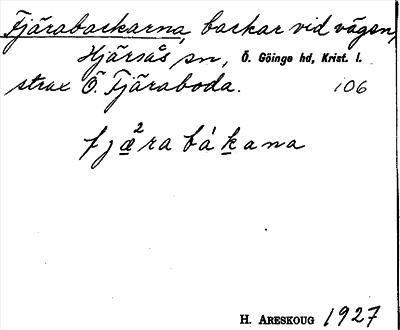 Fjärabackarna, backar vid vägen,
Hjärsås sn, Ö. Göinge hd, Krist. l.
strax Ö. Fjäraboda. 106
fjæ²rabákana
H. ARESKOUG 1927